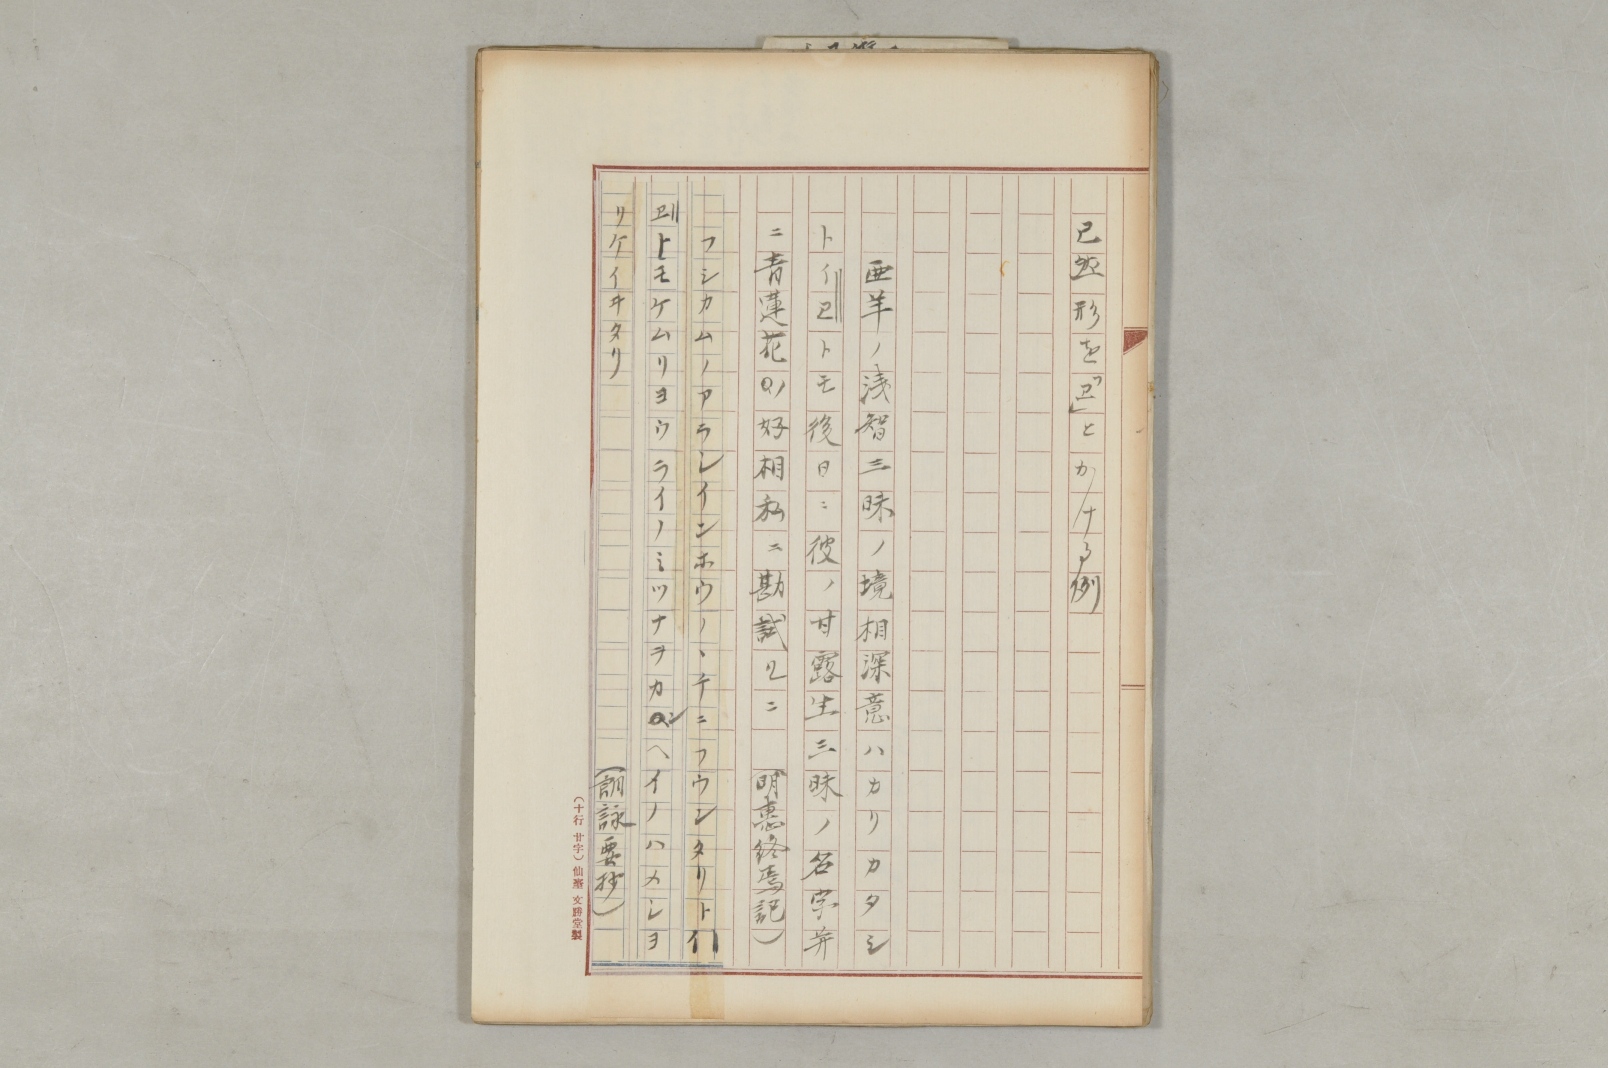 已然形を「ヱ」とかける例
亜羊ノ浅智三昧ノ境相深意ハカリカタシ
トイヱトモ後日ニ彼ノ甘露生三昧ノ名字并
ニ青蓮花ノ好相私ニ勘試ルニ　(明恵終焉記)
フシカムノアラシインホウノヽケニフウンタリトイ
ヱトモケムリヨウライノミツナヲカヘイノハメシヨ
リケイヰタリ　(朗詠要抄)
(十行 廿字) 仙臺 文勝堂製